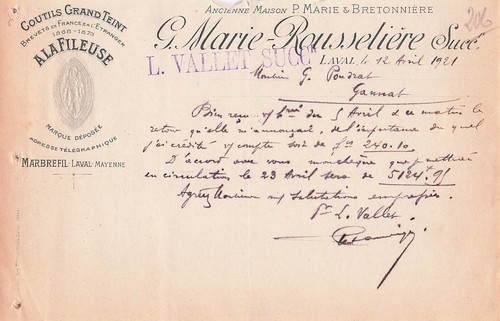 COUTILS GRAND TEINT
BREVETS EN FRANCE & A L'ETRANGER
1868-1873
A LA FILEUSE
MARQUE DÉPOSÉE
ADRESSE TÉLÉGRAPHIQUE
MARBREFIL-LAVAL-MAYENNE
ANCIENNE MAISON P. MARIE & BRETONNIÈRE
206
G. Marie-Rousselière Succr
L. VALLET SUCCR
LAVAL, le 12 Avril 1921
Monsieur G. Poudrat
Gannat
Bien reçu v/ du 5 Avril & ce matin le
retour qu'elle m'annonçait, de l'importance duquel
j'ai crédité v/ compte soit de fcs 240.10.
D'accord avec vous mon chèque que je mettrai
en circulation le 23 Avril sera de 5124f.95
Agréez Monsieur mes salutations empressées.
Pr L. Vallet